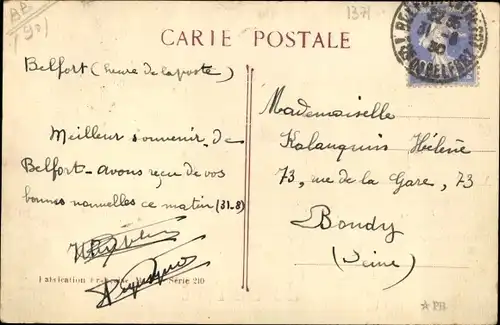 BR
(90)
1371
CARTE POSTALE
Belfort (heure de la poste)
Meilleur souvenir de
Belfort - avons reçu de vos
bonnes nouvelles ce matin (31-8)
Série 210
Mademoiselle
Kalanquin Hélène
73, rue de la Gare, 73
Bondy
(Seine)